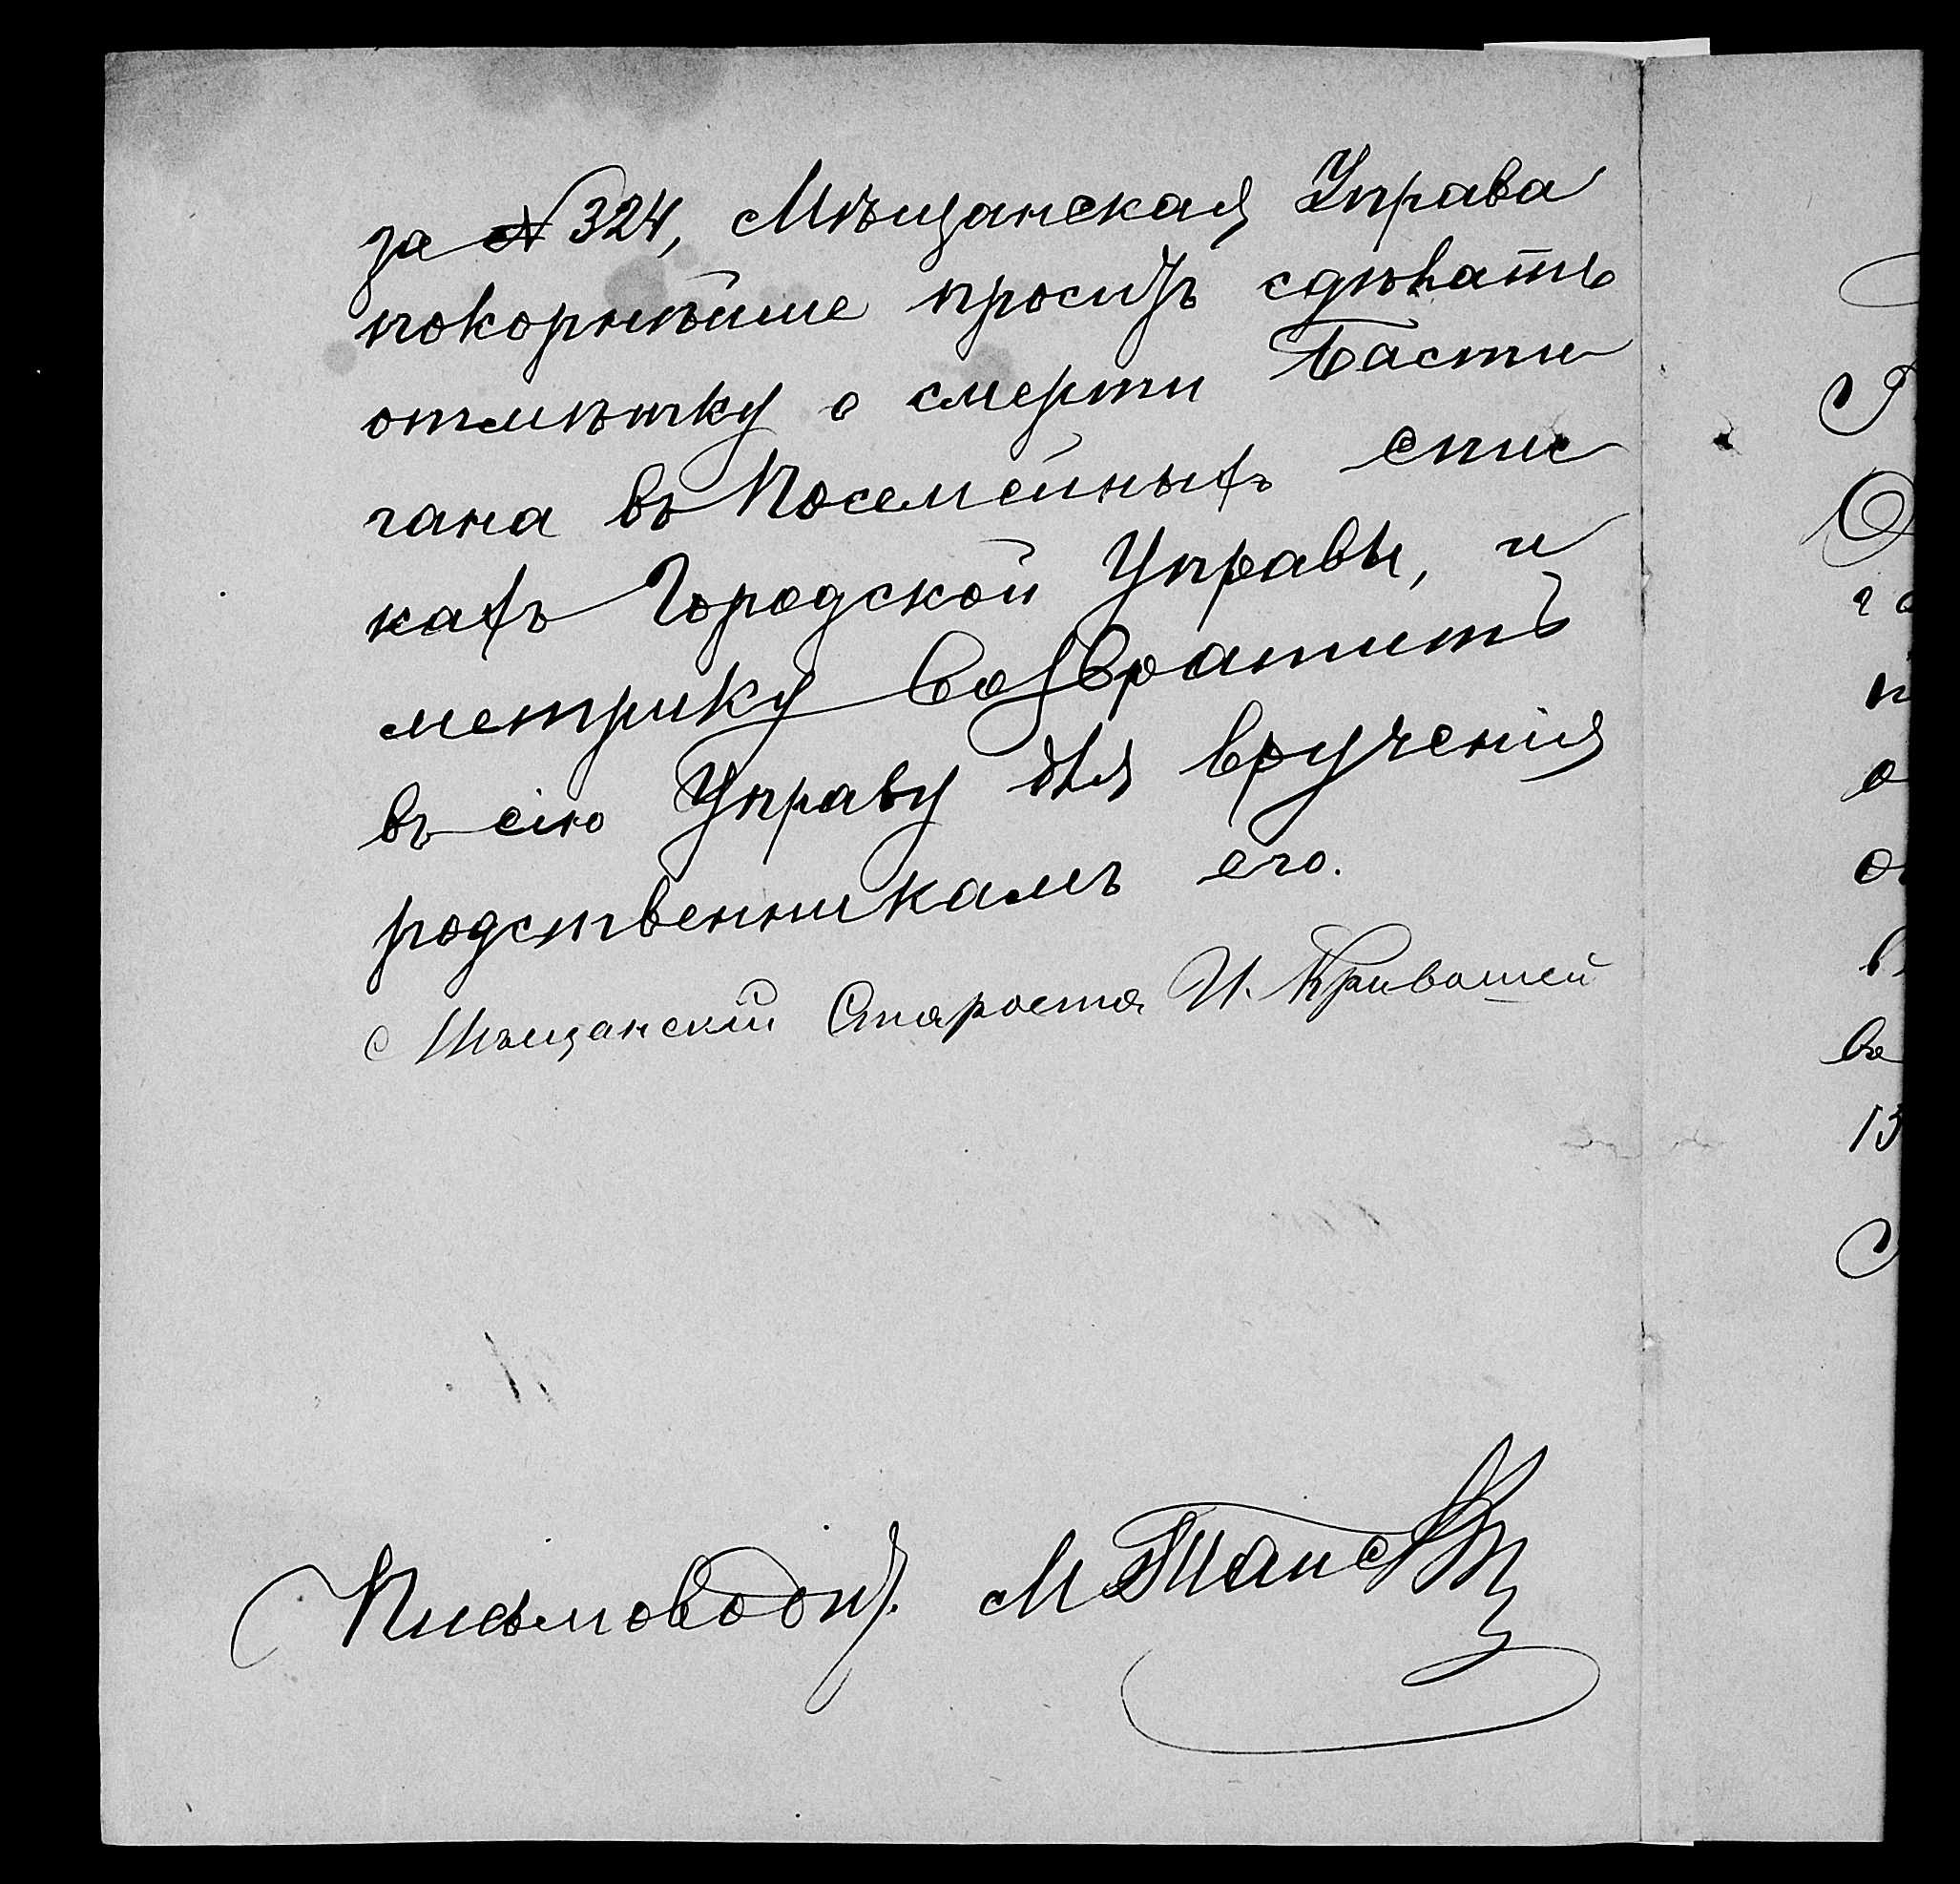 за № 324, Мѣщанская Управа
покорнѣйше проситъ сдѣлать
отмѣтку о смерти Басти
гана въ посемейныхъ спис
кахъ Городской Управы, и
метрику возвратить
въ сію Управу для врученія
родственникамъ его.
Мѣщанскій Староста И. Кривошей
Письмоводит. М.